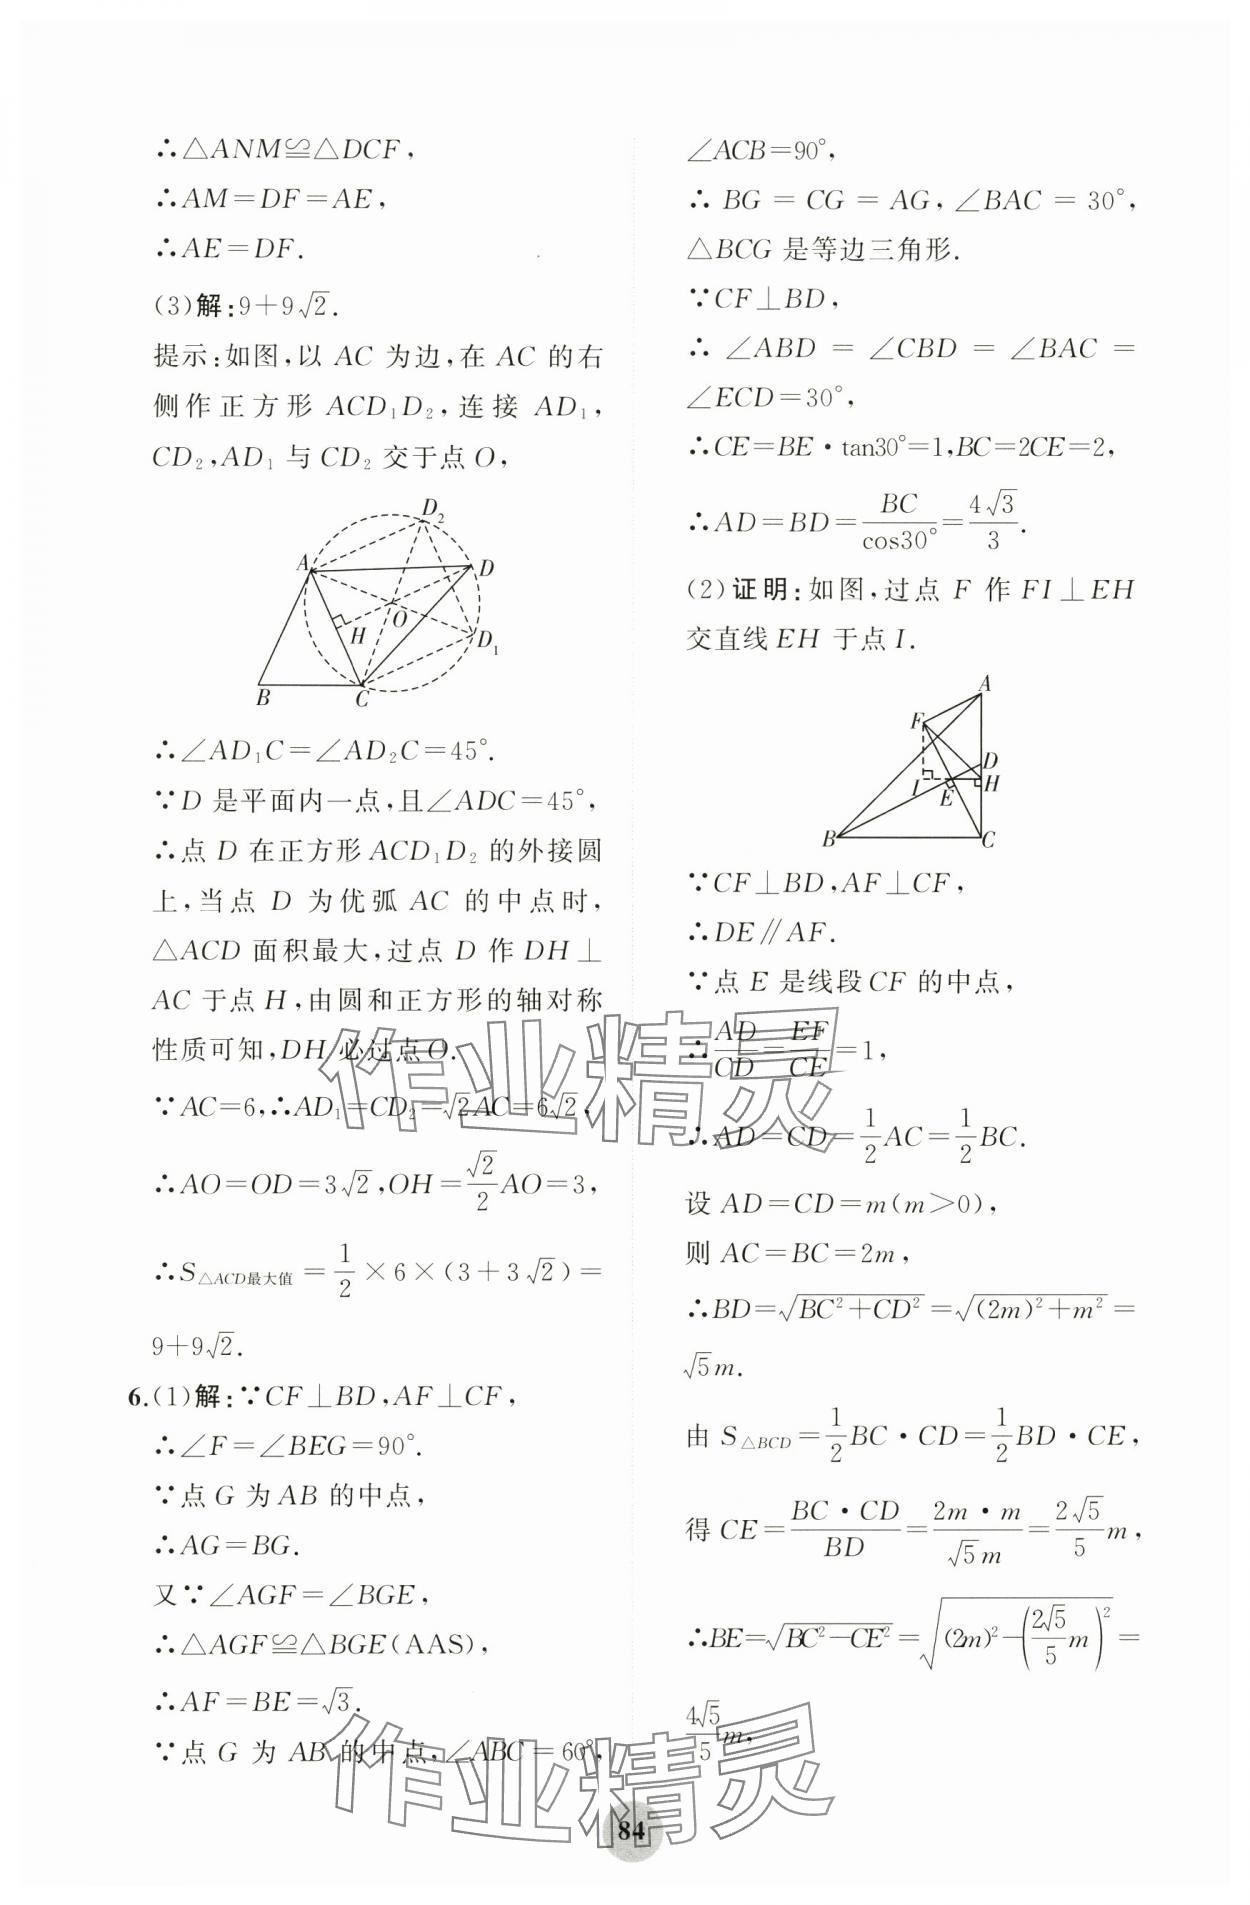 ∴△ANM≌△DCF,
∴AM=DF=AE,
∴AE=DF.
(3)解:9+9√2.
提示:如图,以 AC 为边,在 AC 的右
侧作正方形 ACD₁D₂,连接 AD₁,
CD₂,AD₁ 与 CD₂ 交于点 O,
D₂
A
D
O
H
D₁
B
C
∴∠AD₁C=∠AD₂C=45°.
∵D 是平面内一点,且∠ADC=45°,
∴点 D 在正方形 ACD₁D₂ 的外接圆
上,当点 D 为优弧 AC 的中点时,
△ACD 面积最大,过点 D 作 DH⊥
AC 于点 H,由圆和正方形的轴对称
性质可知,DH 必过点 O.
∵AC=6,∴AD₁=CD₂=√2AC=6√2,
∴AO=OD=3√2,OH=√2/2 AO=3,
∴S△ACD最大值=1/2×6×(3+3√2)=
9+9√2.
6.(1)解:∵CF⊥BD,AF⊥CF,
∴∠F=∠BEG=90°.
∵点 G 为 AB 的中点,
∴AG=BG.
又∵∠AGF=∠BGE,
∴△AGF≌△BGE(AAS),
∴AF=BE=√3.
∵点 G 为 AB 的中点,∠ABC=60°,
∠ACB=90°,
∴ BG = CG = AG,∠BAC = 30°,
△BCG 是等边三角形.
∵CF⊥BD,
∴ ∠ABD = ∠CBD = ∠BAC =
∠ECD=30°,
∴CE=BE·tan30°=1,BC=2CE=2,
∴AD=BD=BC/cos30°=4√3/3.
(2)证明:如图,过点 F 作 FI⊥EH
交直线 EH 于点 I.
A
F
D
I
E
H
B
C
∵CF⊥BD,AF⊥CF,
∴DE∥AF.
∵点 E 是线段 CF 的中点,
∴AD/CD=EF/CE=1,
∴AD=CD=1/2 AC=1/2 BC.
设 AD=CD=m(m>0),
则 AC=BC=2m,
∴BD=√(BC²+CD²)=√((2m)²+m²)=
√5m.
由 S△BCD=1/2 BC·CD=1/2 BD·CE,
得 CE=BC·CD/BD=2m·m/√5m=2√5/5 m,
∴BE=√(BC²-CE²)=√((2m)²-(2√5/5 m)²)=
4√5/5 m,
84
作业精灵
作业精灵